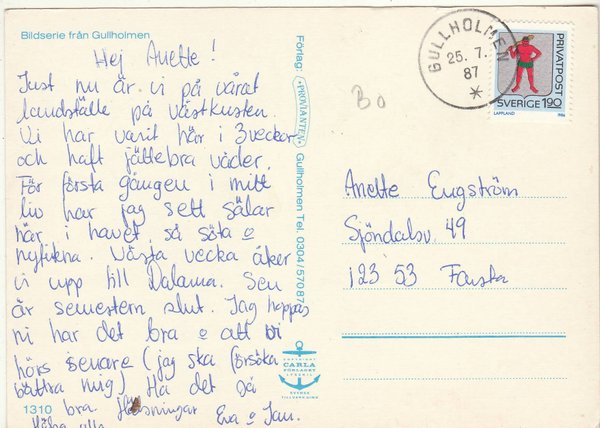 Bildserie från Gullholmen
Hej Anette!
Just nu är vi på vårat
landställe på västkusten.
Vi har varit här i 3 veckor
och haft jättebra väder.
För första gången i mitt
liv har jag sett sälar
här i havet, så söta o
nyfikna. Nästa vecka åker
vi upp till Dalarna. Sen
är semestern slut. Jag hoppas
ni har det bra o att vi
hörs senare (jag ska försöka
bättra mig) Ha det så
bra. Hälsningar Eva o Jan.
1310
Förlag: PROVIANTEN Gullholmen Tel. 0304/57087
COPYRIGHT
CARLA
FÖRLAGET
LYSEKIL
SVERIGE
GULLHOLMEN
25.7.
87
PRIVATPOST
SVERIGE 1.90
LAPPLAND
Bo
Anette Engström
Sjöndalsv. 49
123 53 Farsta